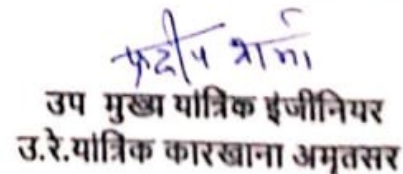 प्रदीप शर्मा
उप मुख्य यांत्रिक इंजीनियर
उ.रे.यांत्रिक कारखाना अमृतसर